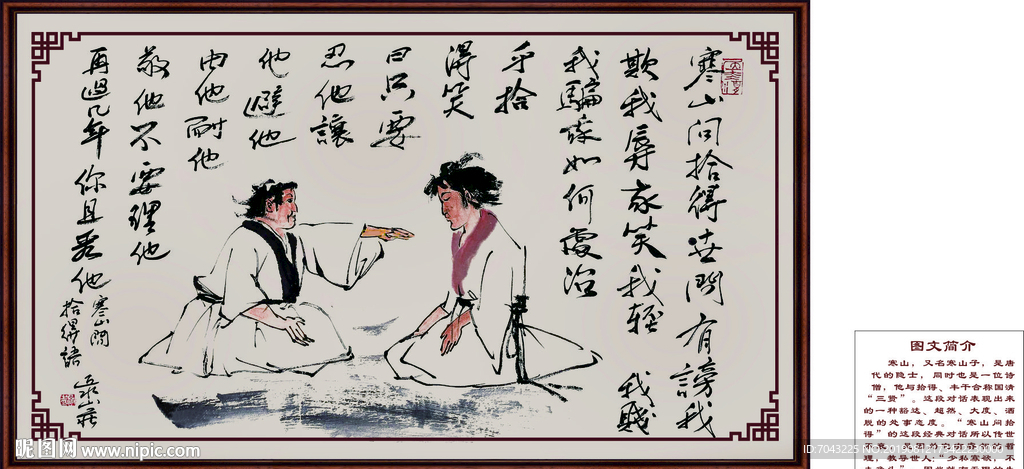 寒山问拾得世间有谤我
欺我辱我笑我轻我贱
我骗我如何處治
乎拾
得笑
曰只要
忍他讓
他避他
由他耐他
敬他不要理他
再過几年你且看他
寒山问
拾得語
图文简介
寒山，又名寒山子，是唐
代的隐士，同时也是一位诗
僧，他与拾得、丰干合称国清
“三贤”。这段对话表现出来
的一种豁达、超然、大度、洒
脱的处事态度。“寒山问拾
得”的这段经典对话所以传世
昵图网 www.nipic.com